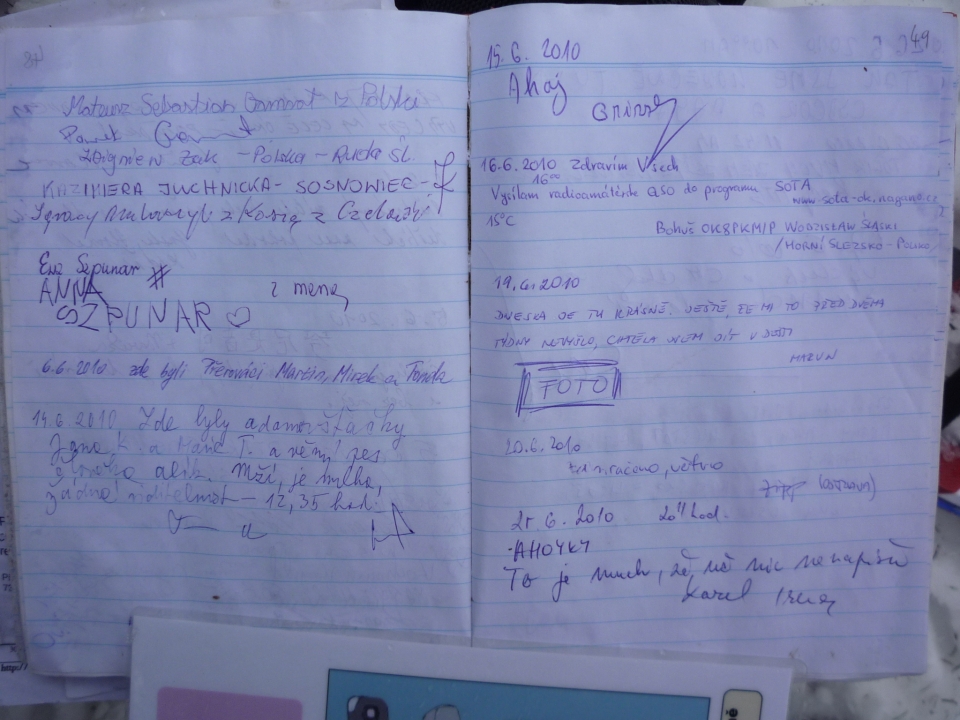 48
Mateusz Sebastian z Polski
Paweł
Zbigniew Żak - Polska - Ruda Śl.
KAZIMIERA JUCHNICKA - SOSNOWIEC -
Ignacy z Kosią z Czeladzi
Ewa Szpunar #
ANNA z meną
SZPUNAR ♡
6.6.2010 zde byli Přerováci Marcin, Mirek a Tonda
14.6.2010 Zde byly
Jana K. a Marie T. a věrný pes
Mží, je mlha,
žádná viditelnost - 12,35 hod.
49
15.6.2010
Ahoj
16.6.2010 Zdravím Všech
16⁰⁰
Vysílám radioamatérské QSO do programu SOTA
www.sota-ok.nagano.cz
15°C
Bohuš OK8PKM/P WODZISŁAW ŚLĄSKI
/HORNÍ SLEZSKO - POLSKO/
19.6.2010
DNESKA JE TU KRÁSNĚ. JEŠTĚ, ŽE MI TO PŘED DVĚMA
TÝDNY NEVYŠLO, CHTĚLA JSEM JÍT V DEŠTI
FOTO
20.6.2010
zamračeno, větrno
(OSTRAVA)
21.6.2010 20¹¹ hod.
AHOYKY
To je, že už nic nenapíšu
Karel
http://